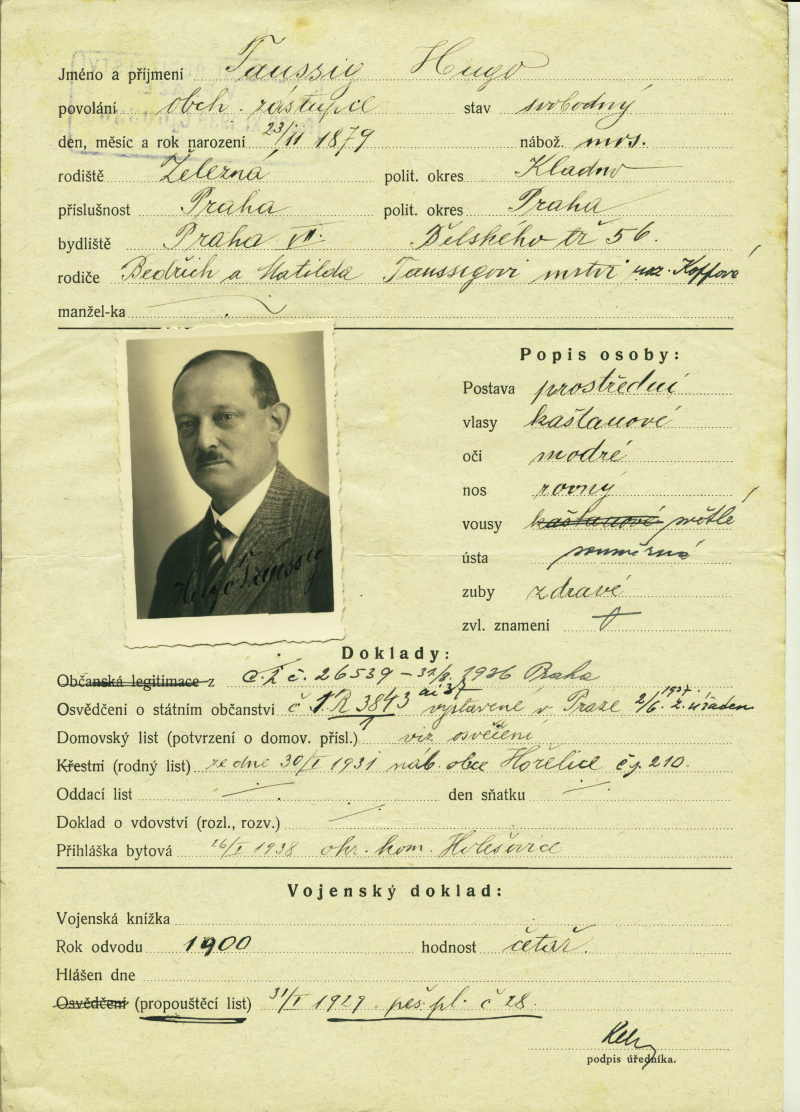 Jméno a příjmení Taussig Hugo
povolání obch. zástupce stav svobodný
den, měsíc a rok narození 23/II 1879 nábož. mos.
rodiště Železná polit. okres Kladno
příslušnost Praha polit. okres Praha
bydliště Praha VII. Bělského tř 56.
rodiče Bedřich a Matilda Taussigovi mrtvi roz. Kopfová
manžel-ka
Popis osoby:
Postava prostřední
vlasy kaštanové
oči modré
nos rovný
vousy kaštanové světlé
ústa souměrná
zuby zdravé
zvl. znamení
Hugo Taussig
Doklady:
Občanská legitimace z č. 26539 1936 Praha
Osvědčení o státním občanství č 1R 3843 ai 37 vystavené v Praze 2/6. 1937. z. úřadem
Domovský list (potvrzení o domov. přísl.) viz osvěčení
Křestní (rodný list) ze dne 30/I 1931 náb. obce Hořelice č.j. 210.
Oddací list den sňatku
Doklad o vdovství (rozl., rozv.)
Přihláška bytová 26/I 1938 okr. kom. Holešovice
Vojenský doklad:
Vojenská knížka
Rok odvodu 1900 hodnost četař.
Hlášen dne
Osvědčení (propouštěcí list) 31/I 1927 peš. pl. č 28.
podpis úředníka.